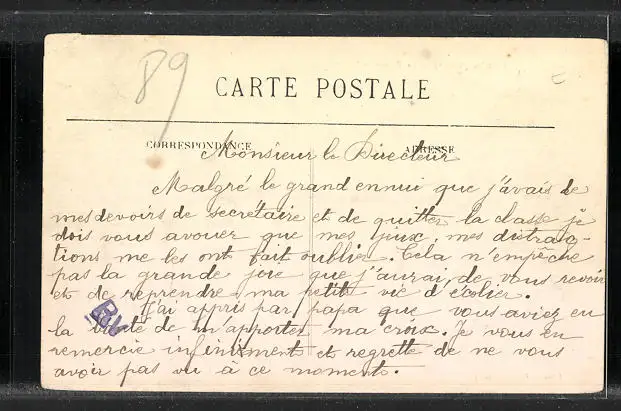 89
CARTE POSTALE
CORRESPONDANCE ADRESSE
Monsieur le Directeur
Malgré le grand ennui que j'avais de
mes devoirs de secrétaire et de quitter la classe je
dois vous avouer que mes jeux, mes distrac-
tions me les ont fait oublier. Cela n'empêche
pas la grande joie que j'aurai de vous revoir
et de reprendre ma petite vie d'écolier.
J'ai appris par papa que vous aviez eu
la bonté de m'apporter ma croix. Je vous en
remercie infiniment et regrette de ne vous
avoir pas vu à ce moment.